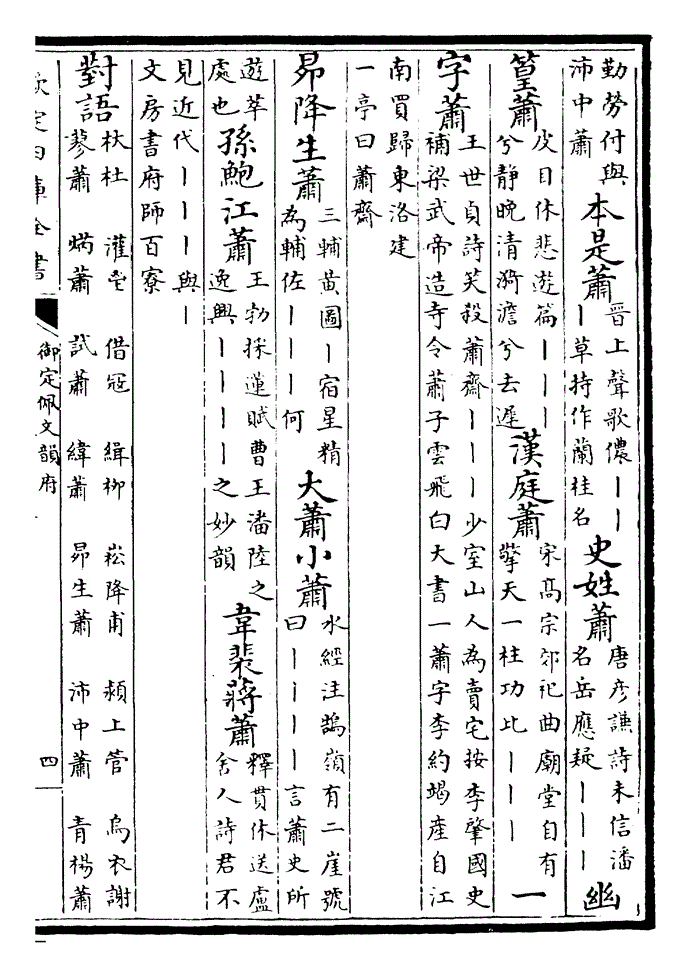 勤勞付與
沛中蕭
本是蕭
晉上聲歌儂丨丨
丨草持作蘭桂名
史姓蕭
唐彥謙詩未信潘
名岳應疑丨丨丨
幽
篁蕭
皮日休悲遊篇丨丨丨
兮靜晚清漪澹兮去遲
漢庭蕭
宋高宗郊祀曲廟堂自有
擎天一柱功比丨丨丨
一
字蕭
王世貞詩笑殺蕭齋丨丨丨少室山人為賣宅按李肇國史
補梁武帝造寺令蕭子雲飛白大書一蕭字李約竭產自江
南買歸東洛建
一亭曰蕭齋
昴降生蕭
三輔黃圖丨宿星精
為輔佐丨丨丨何
大蕭小蕭
水經注鵠嶺有二崖號
曰丨丨丨丨言蕭史所
遊萃
處也
孫鮑江蕭
王勃採蓮賦曹王潘陸之
逸興丨丨丨丨之妙韻
韋裴蔣蕭
釋貫休送盧
舍人詩君不
見近代丨丨丨與丨
文房書府師百寮
對語
杕杜 灌鬯 借冠 緝柳 崧降甫 潁上管 烏衣謝
蓼蕭 焫蕭 試蕭 緯蕭 昴生蕭 沛中蕭 青楊蕭
欽定四庫全書
御定佩文韻府
四